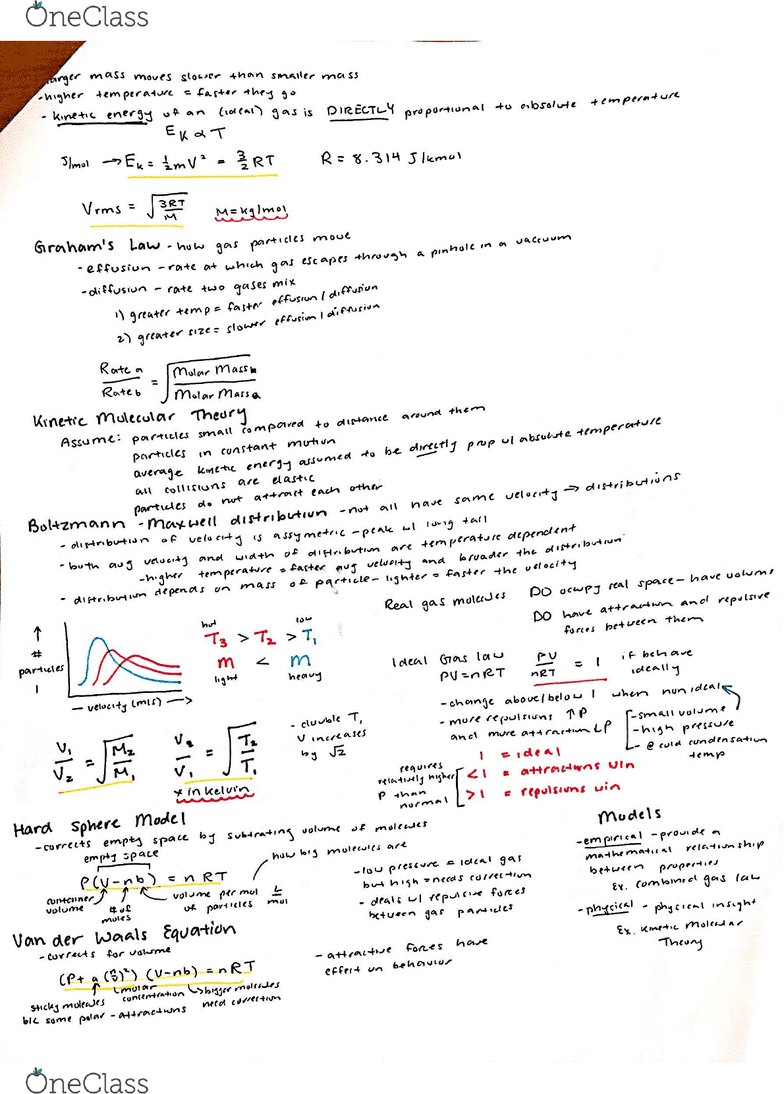 OneClass
larger mass moves slower than smaller mass
-higher temperature = faster they go
- kinetic energy of an (ideal) gas is DIRECTLY proportional to absolute temperature
EK ∝ T
J/mol → EK = ½mV² = 3/2 RT R = 8.314 J/kmol
Vrms = √(3RT/M) M=kg/mol
Graham's Law - how gas particles move
- effusion - rate at which gas escapes through a pinhole in a vaccuum
- diffusion - rate two gases mix
1) greater temp = faster effusion / diffusion
2) greater size = slower effusion / diffusion
Rate a / Rate b = √(Molar Mass b / Molar Mass a)
Kinetic Molecular Theory
Assume: particles small compared to distance around them
particles in constant motion
average kinetic energy assumed to be directly prop w/ absolute temperature
all collisions are elastic
particles do not attract each other
Boltzmann - Maxwell distribution - not all have same velocity → distributions
- distribution of velocity is assymetric - peak w/ long tail
- both avg velocity and width of distribution are temperature dependent
- higher temperature = faster avg velocity and broader the distribution
- distribution depends on mass of particle - lighter = faster the velocity
↑
#
particles
- velocity (m/s) →
hot low
T3 > T2 > T1
m < m
light heavy
V1/V2 = √(M2/M1) V2/V1 = √(T2/T1)
* in kelvin
- double T,
V increases
by √2
Real gas molecules DO occupy real space - have volume
DO have attraction and repulsive
forces between them
Ideal Gas law PV/nRT = 1 if behave
PV=nRT ideally
- change above/below 1 when nonideal
- more repulsions ↑P
and more attraction ↓P
- small volume
- high pressure
- @ cold condensation
temp
requires
relatively higher
P than
normal
1 = ideal
<1 = attractions win
>1 = repulsions win
Hard Sphere Model
- corrects empty space by subtrating volume of molecules
empty space
how big molecules are
P(V-nb) = nRT
container
volume
# of
moles
volume per mol L/mol
of particles
- low pressure = ideal gas
but high = needs correction
- deals w/ repulsive forces
between gas particles
Van der Waals Equation
- corrects for volume
(P + a(n/V)²) (V-nb) = nRT
sticky molecules
b/c some polar - attractions
molar
concentration
bigger molecules
need correction
- attractive forces have
effect on behavior
Models
- empirical - provide a
mathematical relationship
between properties
Ex. combined gas law
- physical - physical insight
Ex. Kinetic Molecular
Theory
OneClass